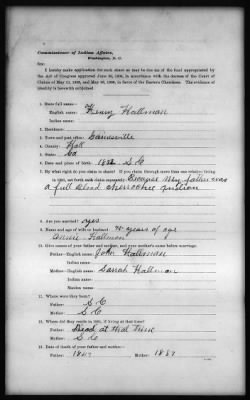 Commissioner of Indian Affairs,
Washington, D. C.
Sir:
I hereby make application for such share as may be due me of the fund appropriated by
the Act of Congress approved June 30, 1906, in accordance with the decrees of the Court of
Claims of May 18, 1905, and May 28, 1906, in favor of the Eastern Cherokees. The evidence
of identity is herewith subjoined.
1. State full name—
English name: Henry Hallman
Indian name:
2. Residence:
3. Town and post office: Gainesville
4. County: Hall
5. State: Ga
6. Date and place of birth: S C
7. By what right do you claim to share? If you claim through more than one relative living
in 1851, set forth each claim separately: Because My father was
a full blood cherookee indian
8. Are you married? yes
9. Name and age of wife or husband: years of age
Hallman
10. Give names of your father and mother, and your mother's name before marriage.
Father—English name: John Hallman
Indian name:
Mother—English name: Sarrah Hallman
Indian name:
Maiden name:
11. Where were they born?
Father: S C
Mother: S C
12. Where did they reside in 1851, if living at that time?
Father: Dead at that time
Mother: S C
13. Date of death of your father and mother—
Father: Mother: